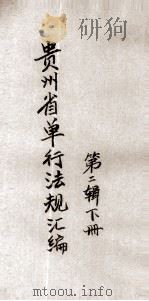 贵州省单行法规汇编
第二辑下册
www.mtoou.info